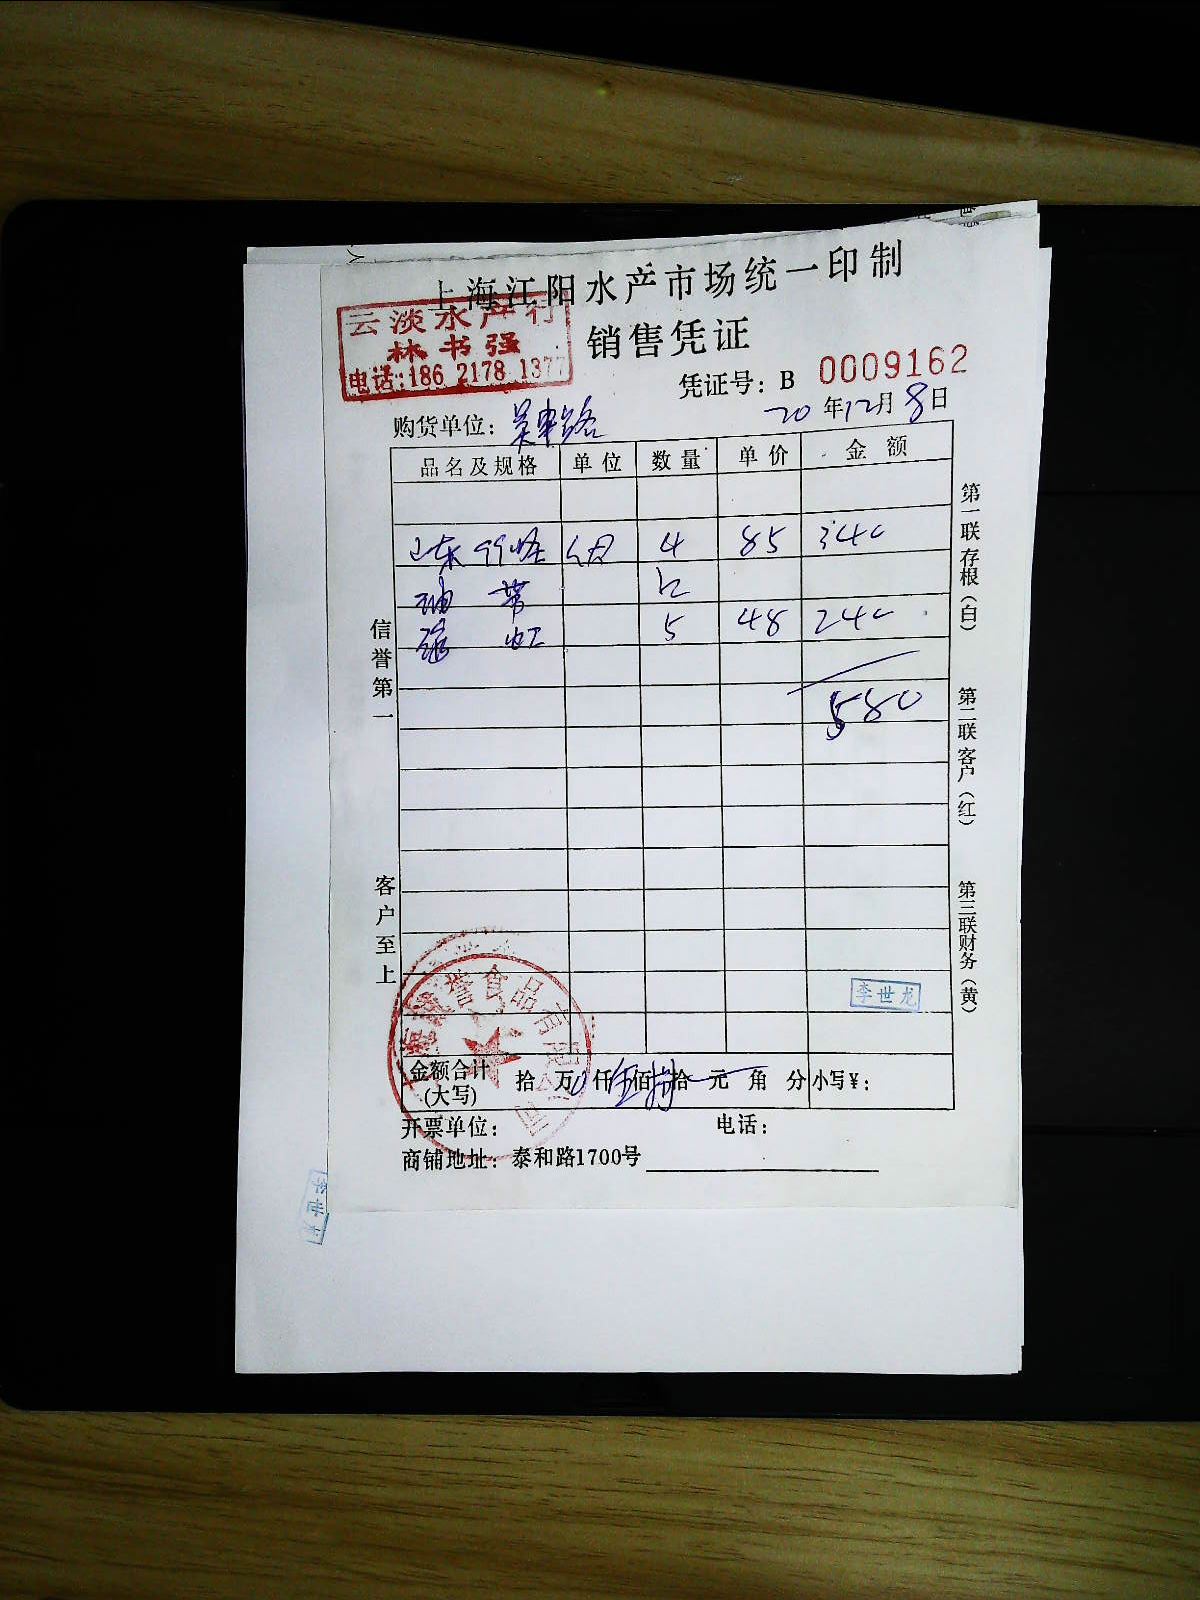 上海江阳水产市场统一印制
云淡水产行
林书强
电话:186 2178 1377
销售凭证
凭证号: B 0009162
购货单位:
20 年 12 月 8 日
品名及规格 单位 数量 单价 金额
山东 4 85 340
带
虾 5 48 240
580
信誉第一
客户至上
第一联存根(白)
第二联客户(红)
第三联财务(黄)
誉食品有限公司
李世龙
金额合计(大写) 拾 万 仟 伍 佰 捌 拾 元 角 分 小写¥:
开票单位: 电话:
商铺地址: 泰和路1700号
李世龙